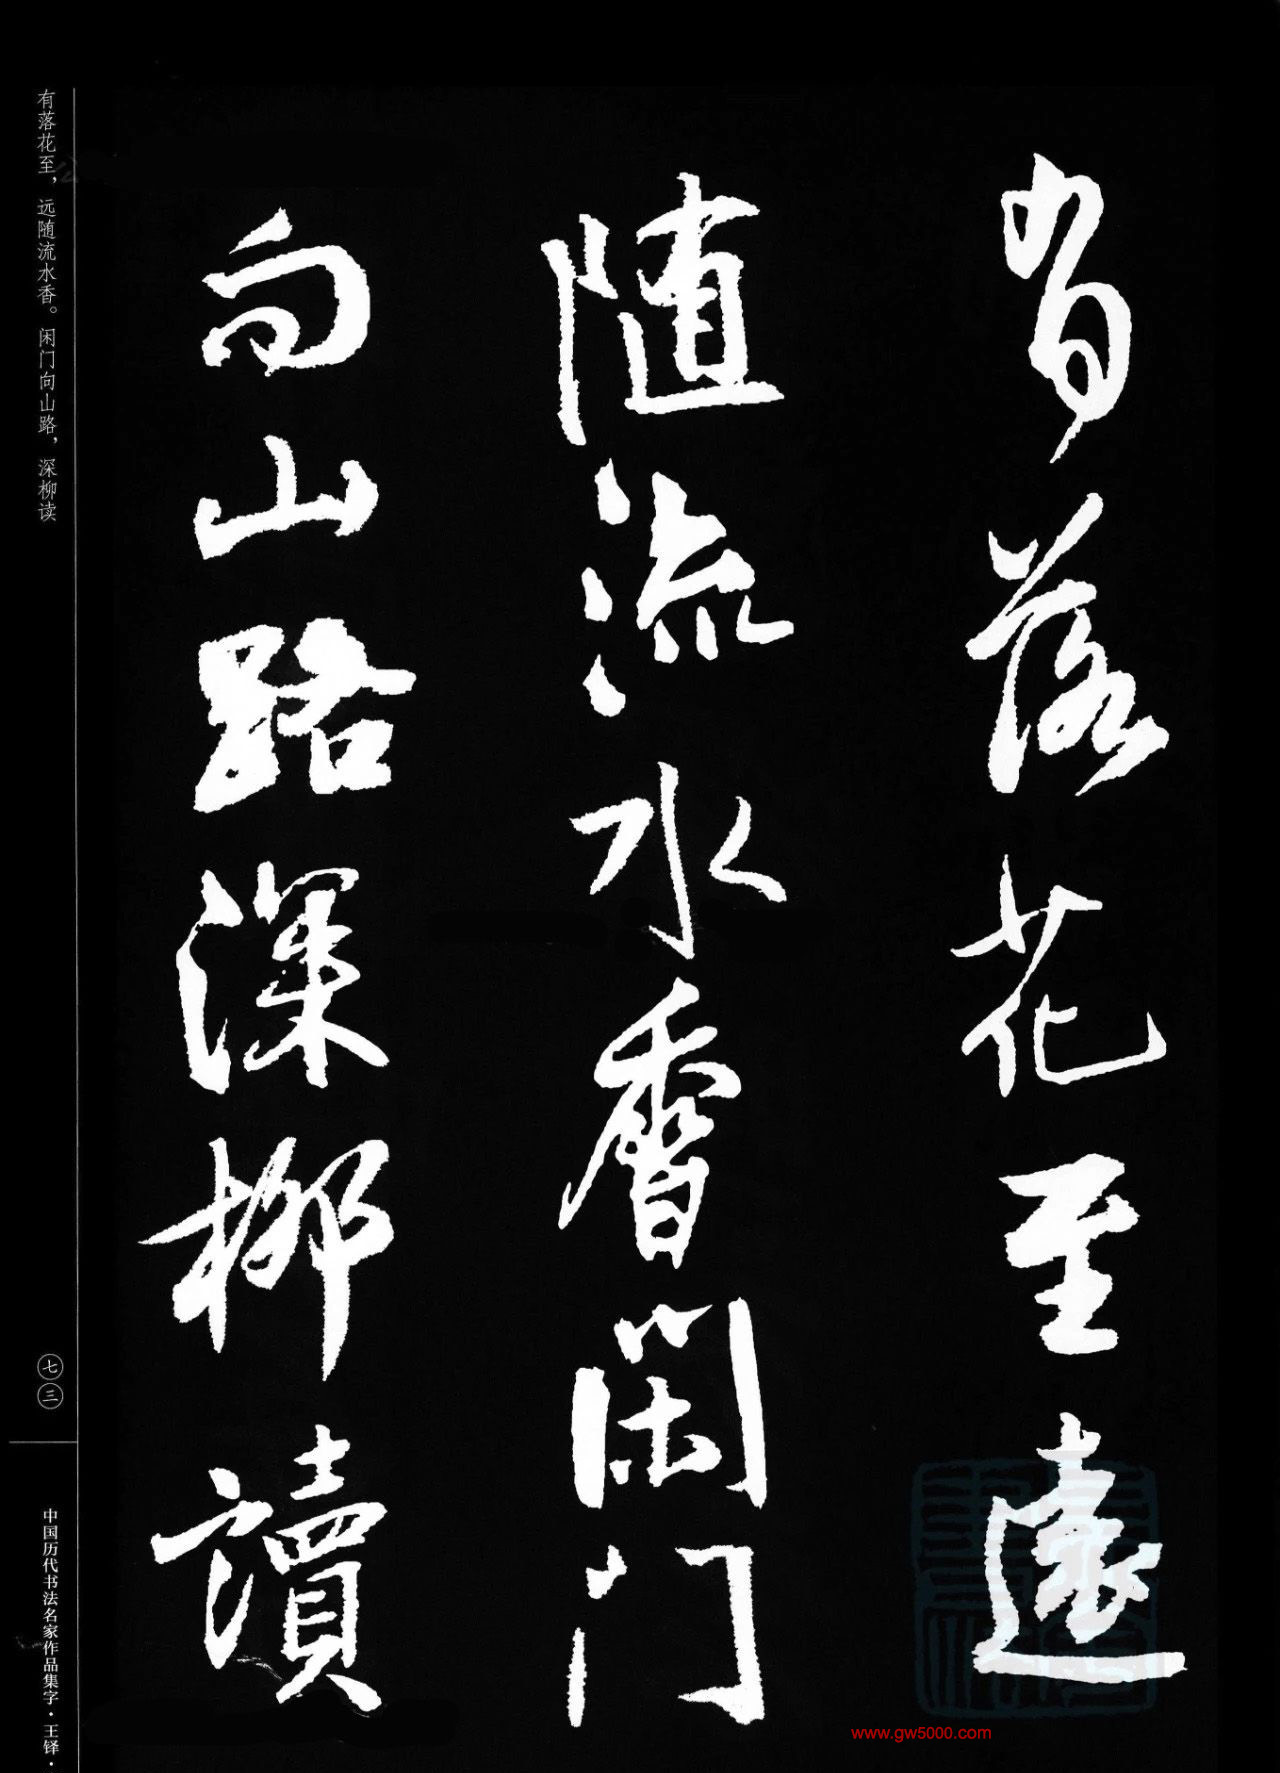 时落花至遠
随流水香閑门
向山路深柳讀
有落花至，远随流水香。闲门向山路，深柳读
七三
中国历代书法名家作品集字·王铎·
www.gw5000.com